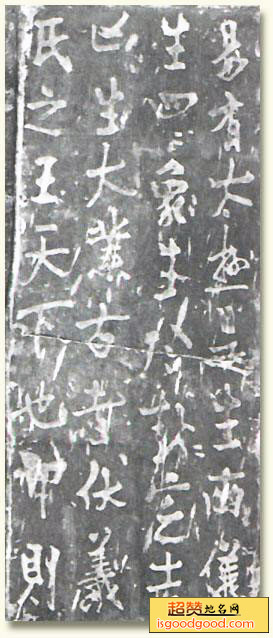 易有太極是生兩儀
生四〻象生八卦〻定吉
凶生大業古者伏羲
氏之王天下也仰則
超赞地名网
isgoodgood.com